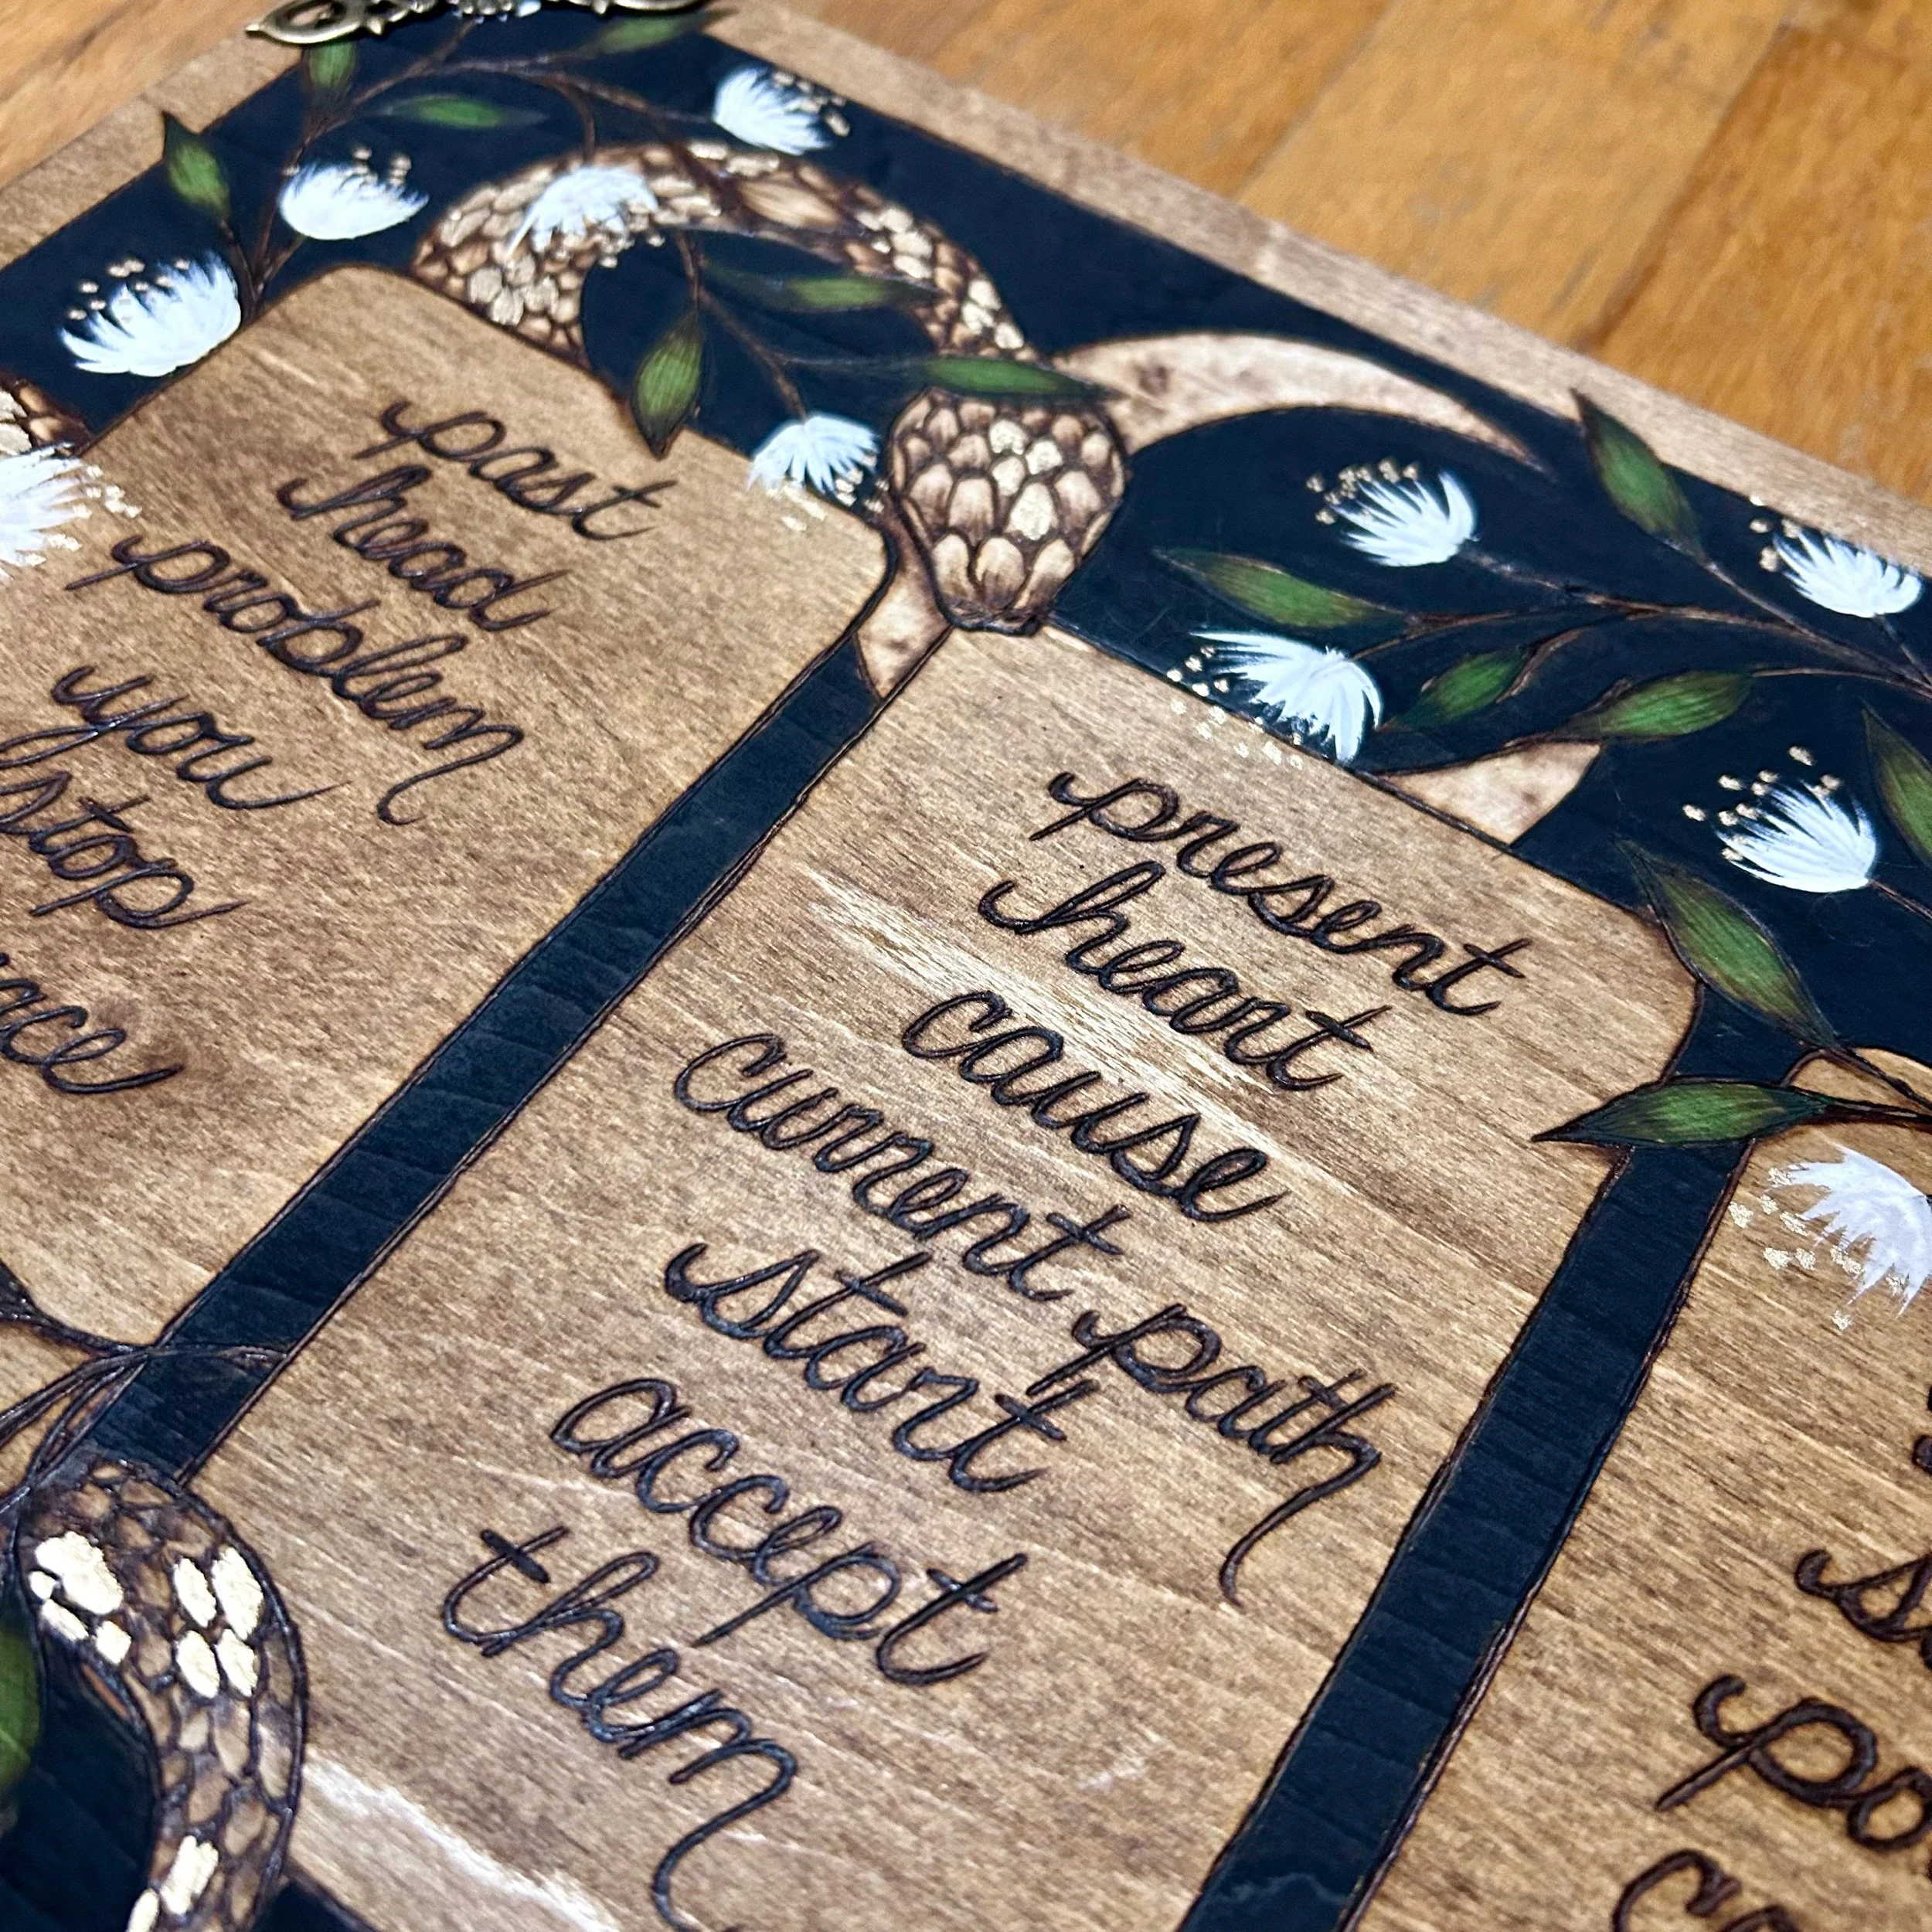 past
head
problem
you
stop
present
heart
cause
current path
start
accept
them